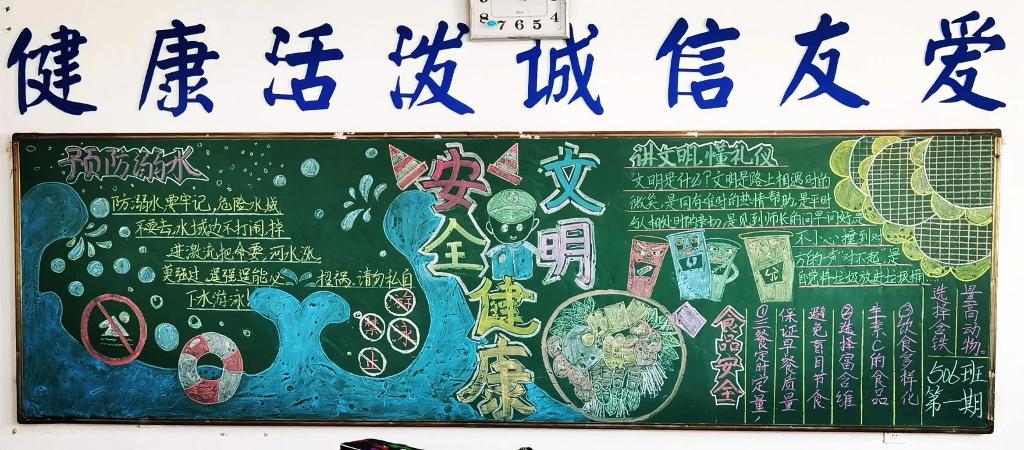 健康活泼诚信友爱
8 7 6 5 4
预防溺水
防溺水,要牢记,危险水域
不要去,水域边不打闹,掉
进激流把命要,河水涨
莫强过,逞强逞能必招祸,请勿私自
下水游泳!
安全健康
文明
讲文明,懂礼仪
文明是什么?文明是路上相遇时的
微笑,是同有难时的热情帮助,是平时
与人相处时的亲切,是见到师长的问早问好,是
不小心撞到对
方的一声"对不起",是
自觉将垃圾放进垃圾桶
食品安全
①三餐定时定量,
保证早餐质量
避免盲目节食
②选择富含维
生素C的食品
③饮食多样化
选择含铁
量高动物。
506班
第一期